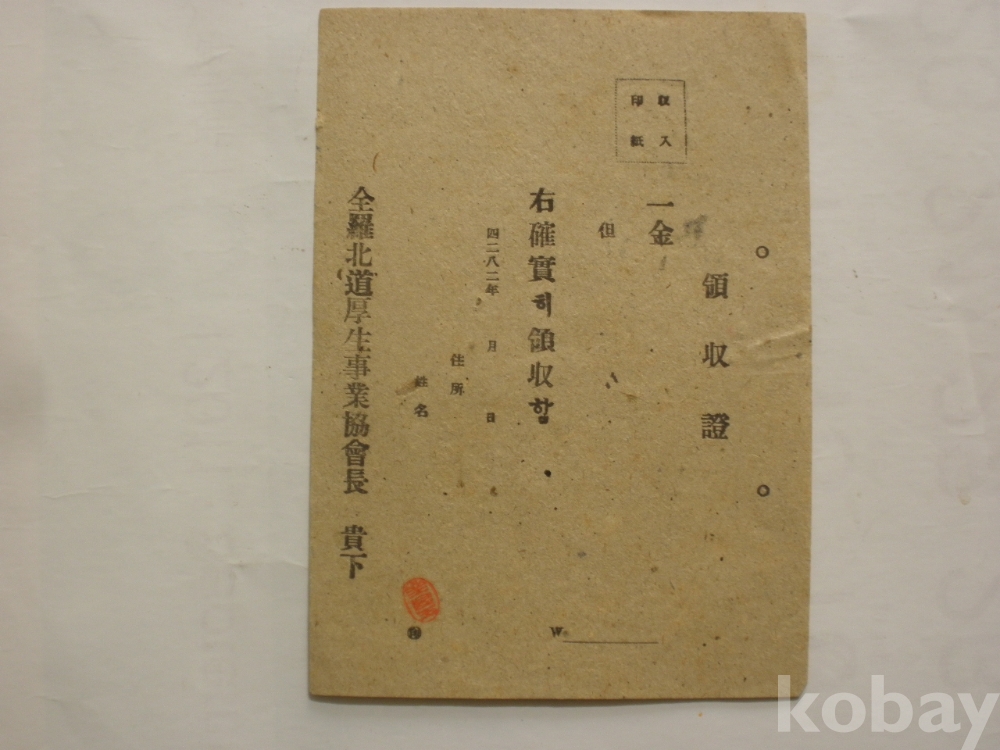 收入
印紙
領收證
一金
但
右確實히領收함
四二八二年 月 日
住所
姓名
全羅北道厚生事業協會長 貴下
印
W
kobay